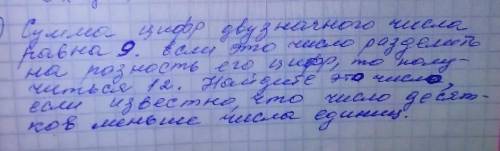 ) Сумма цифр двузначного числа
равна 9. если это число разделить
на разность его цифр, то полу-
читься 12. Найдите это число,
если известно, что число десят-
ков меньше числа единиц.